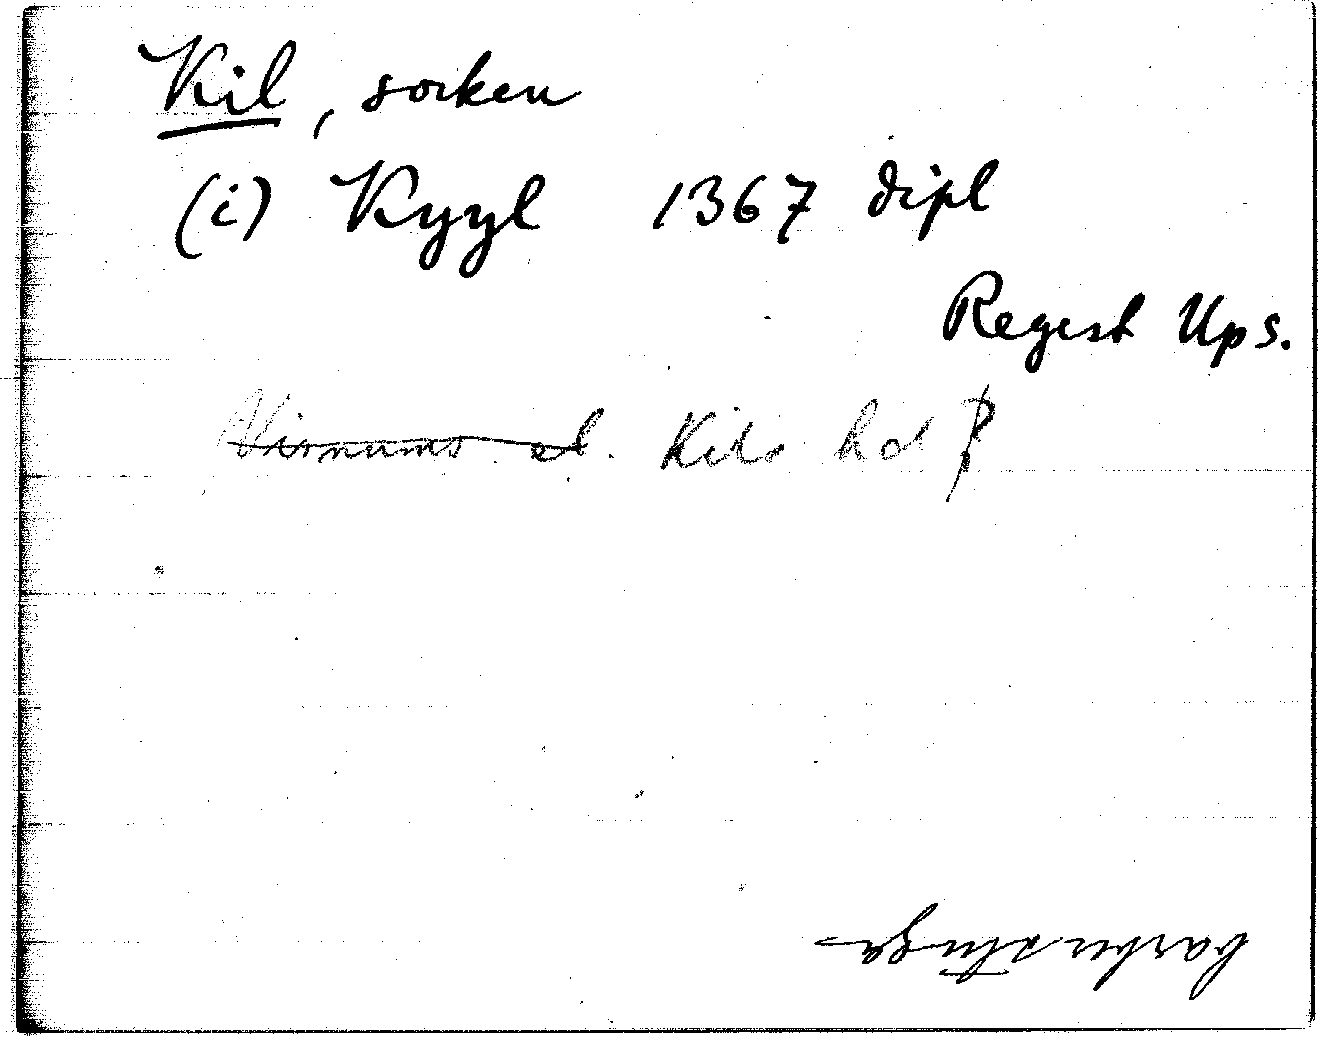 Kil, socken
(i) Kyyl 1367 dipl
Regest Ups.
Visnums el. Kils hd
barberstuga